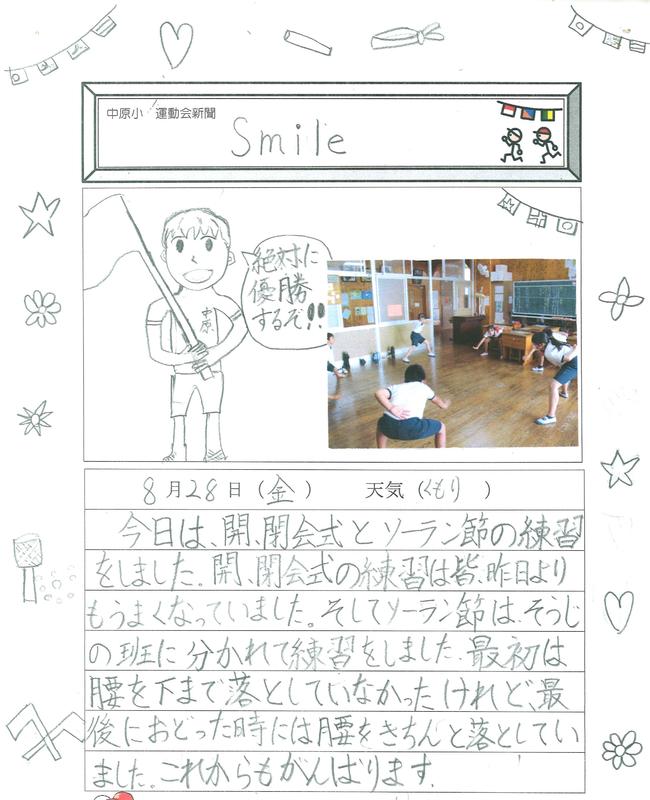 中原小 運動会新聞
Smile
絶対に
優勝
するぞ!!
中原
8月28日(金) 天気(くもり)
今日は、開、閉会式とソーラン節の練習
をしました。開、閉会式の練習は皆、昨日より
もうまくなっていました。そしてソーラン節は、そうじ
の班に分かれて練習をしました。最初は
腰を下まで落としていなかったけれど、最
後におどった時には腰をきちんと落としてい
ました。これからもがんばります。